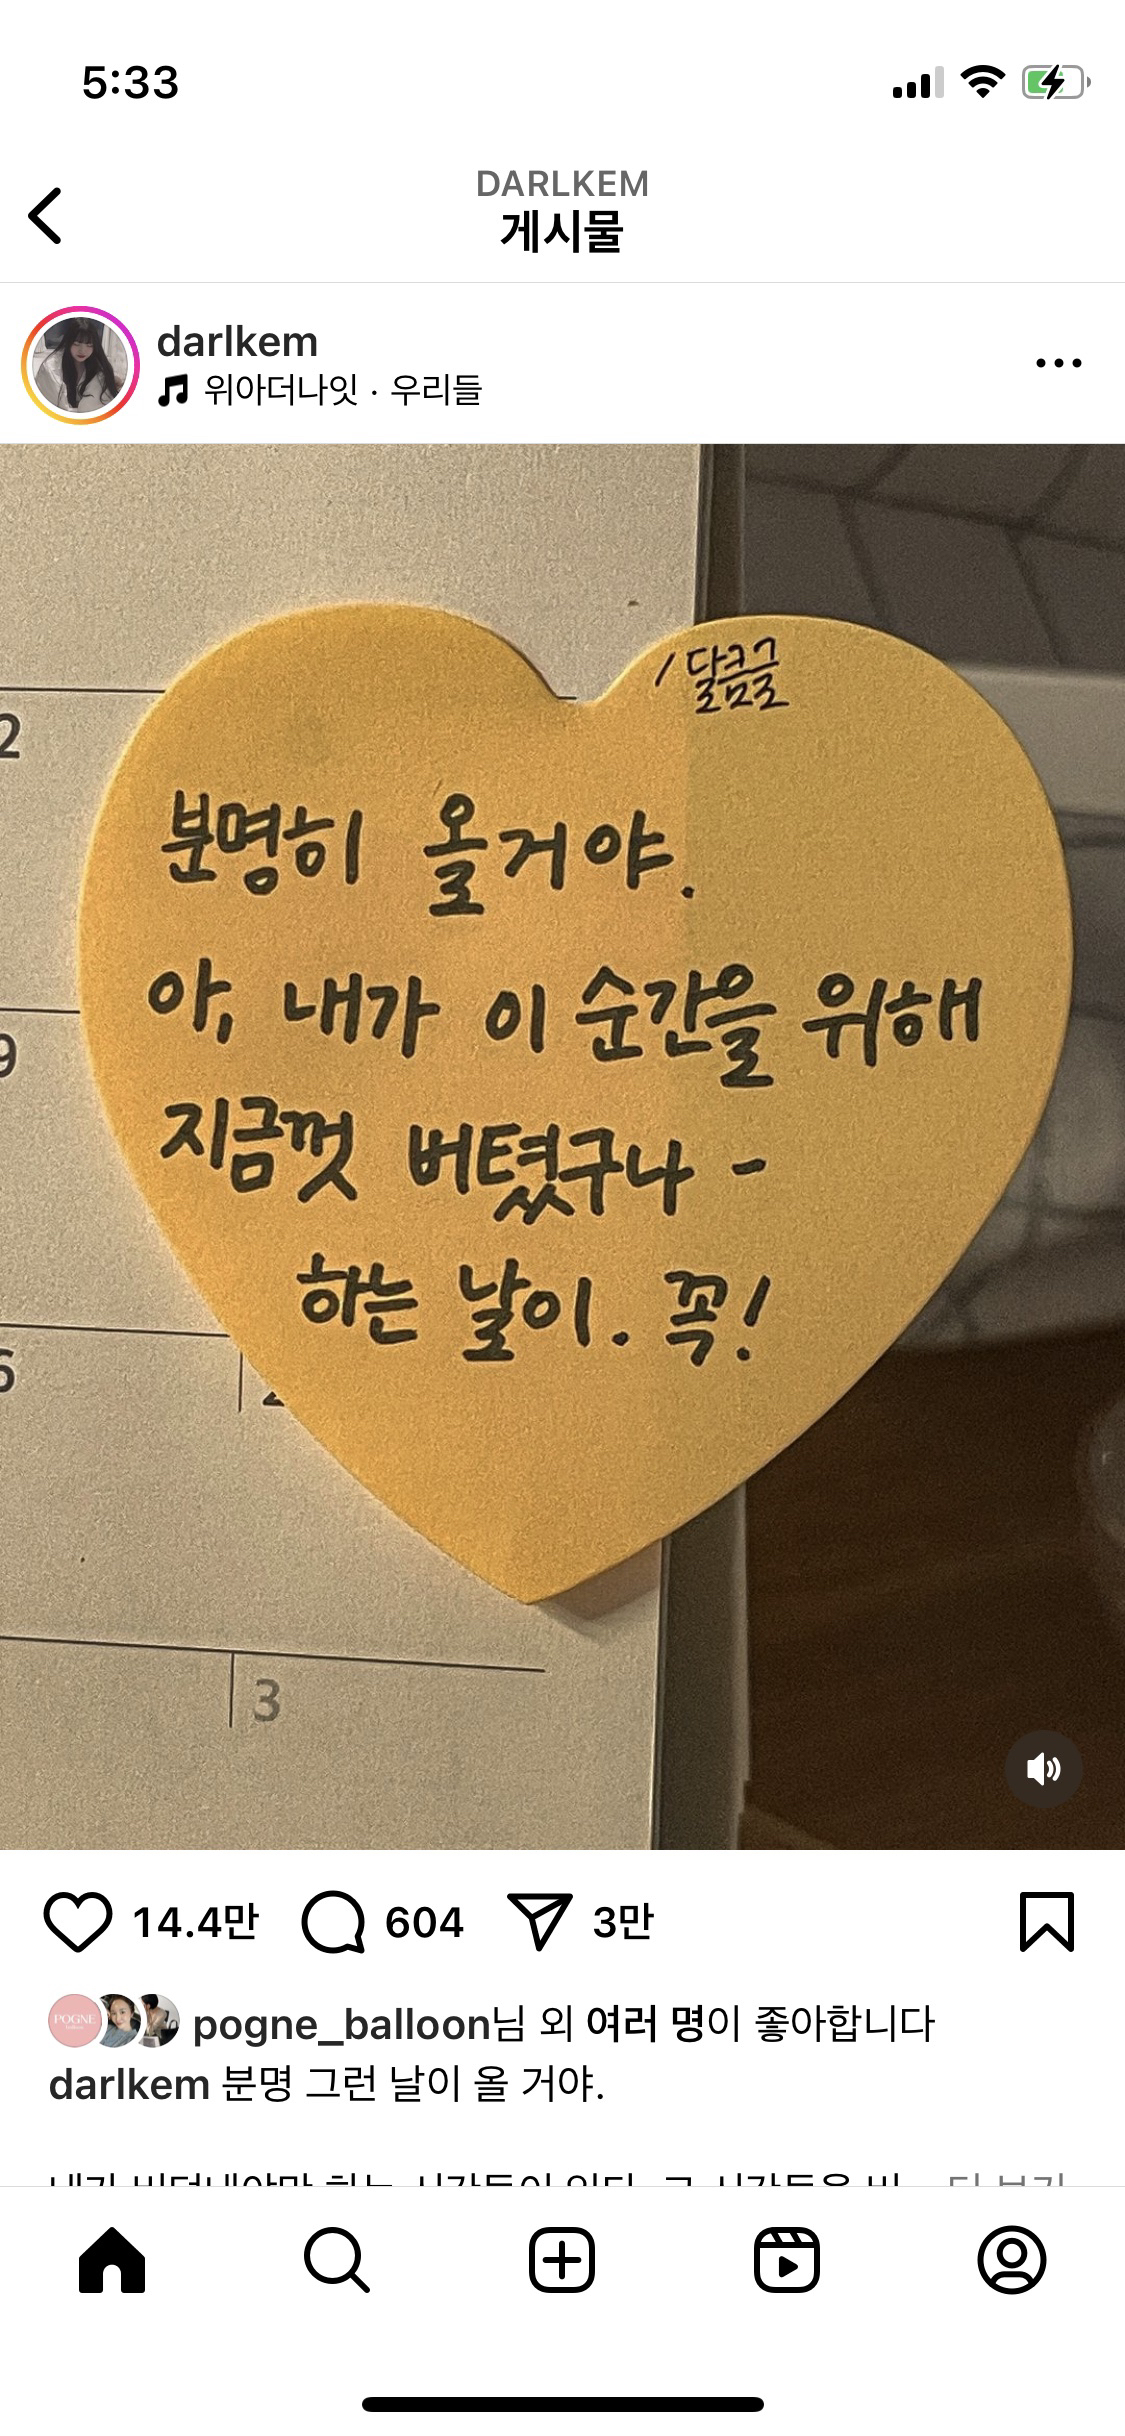 5:33
DARLKEM
게시물
darlkem
위아더나잇 · 우리들
/달큼글
분명히 올거야.
아, 내가 이 순간을 위해
지금껏 버텼구나 -
하는 날이. 꼭!
2
9
6
2
3
14.4만 604 3만
POGNE
pogne_balloon님 외 여러 명이 좋아합니다
darlkem 분명 그런 날이 올 거야.